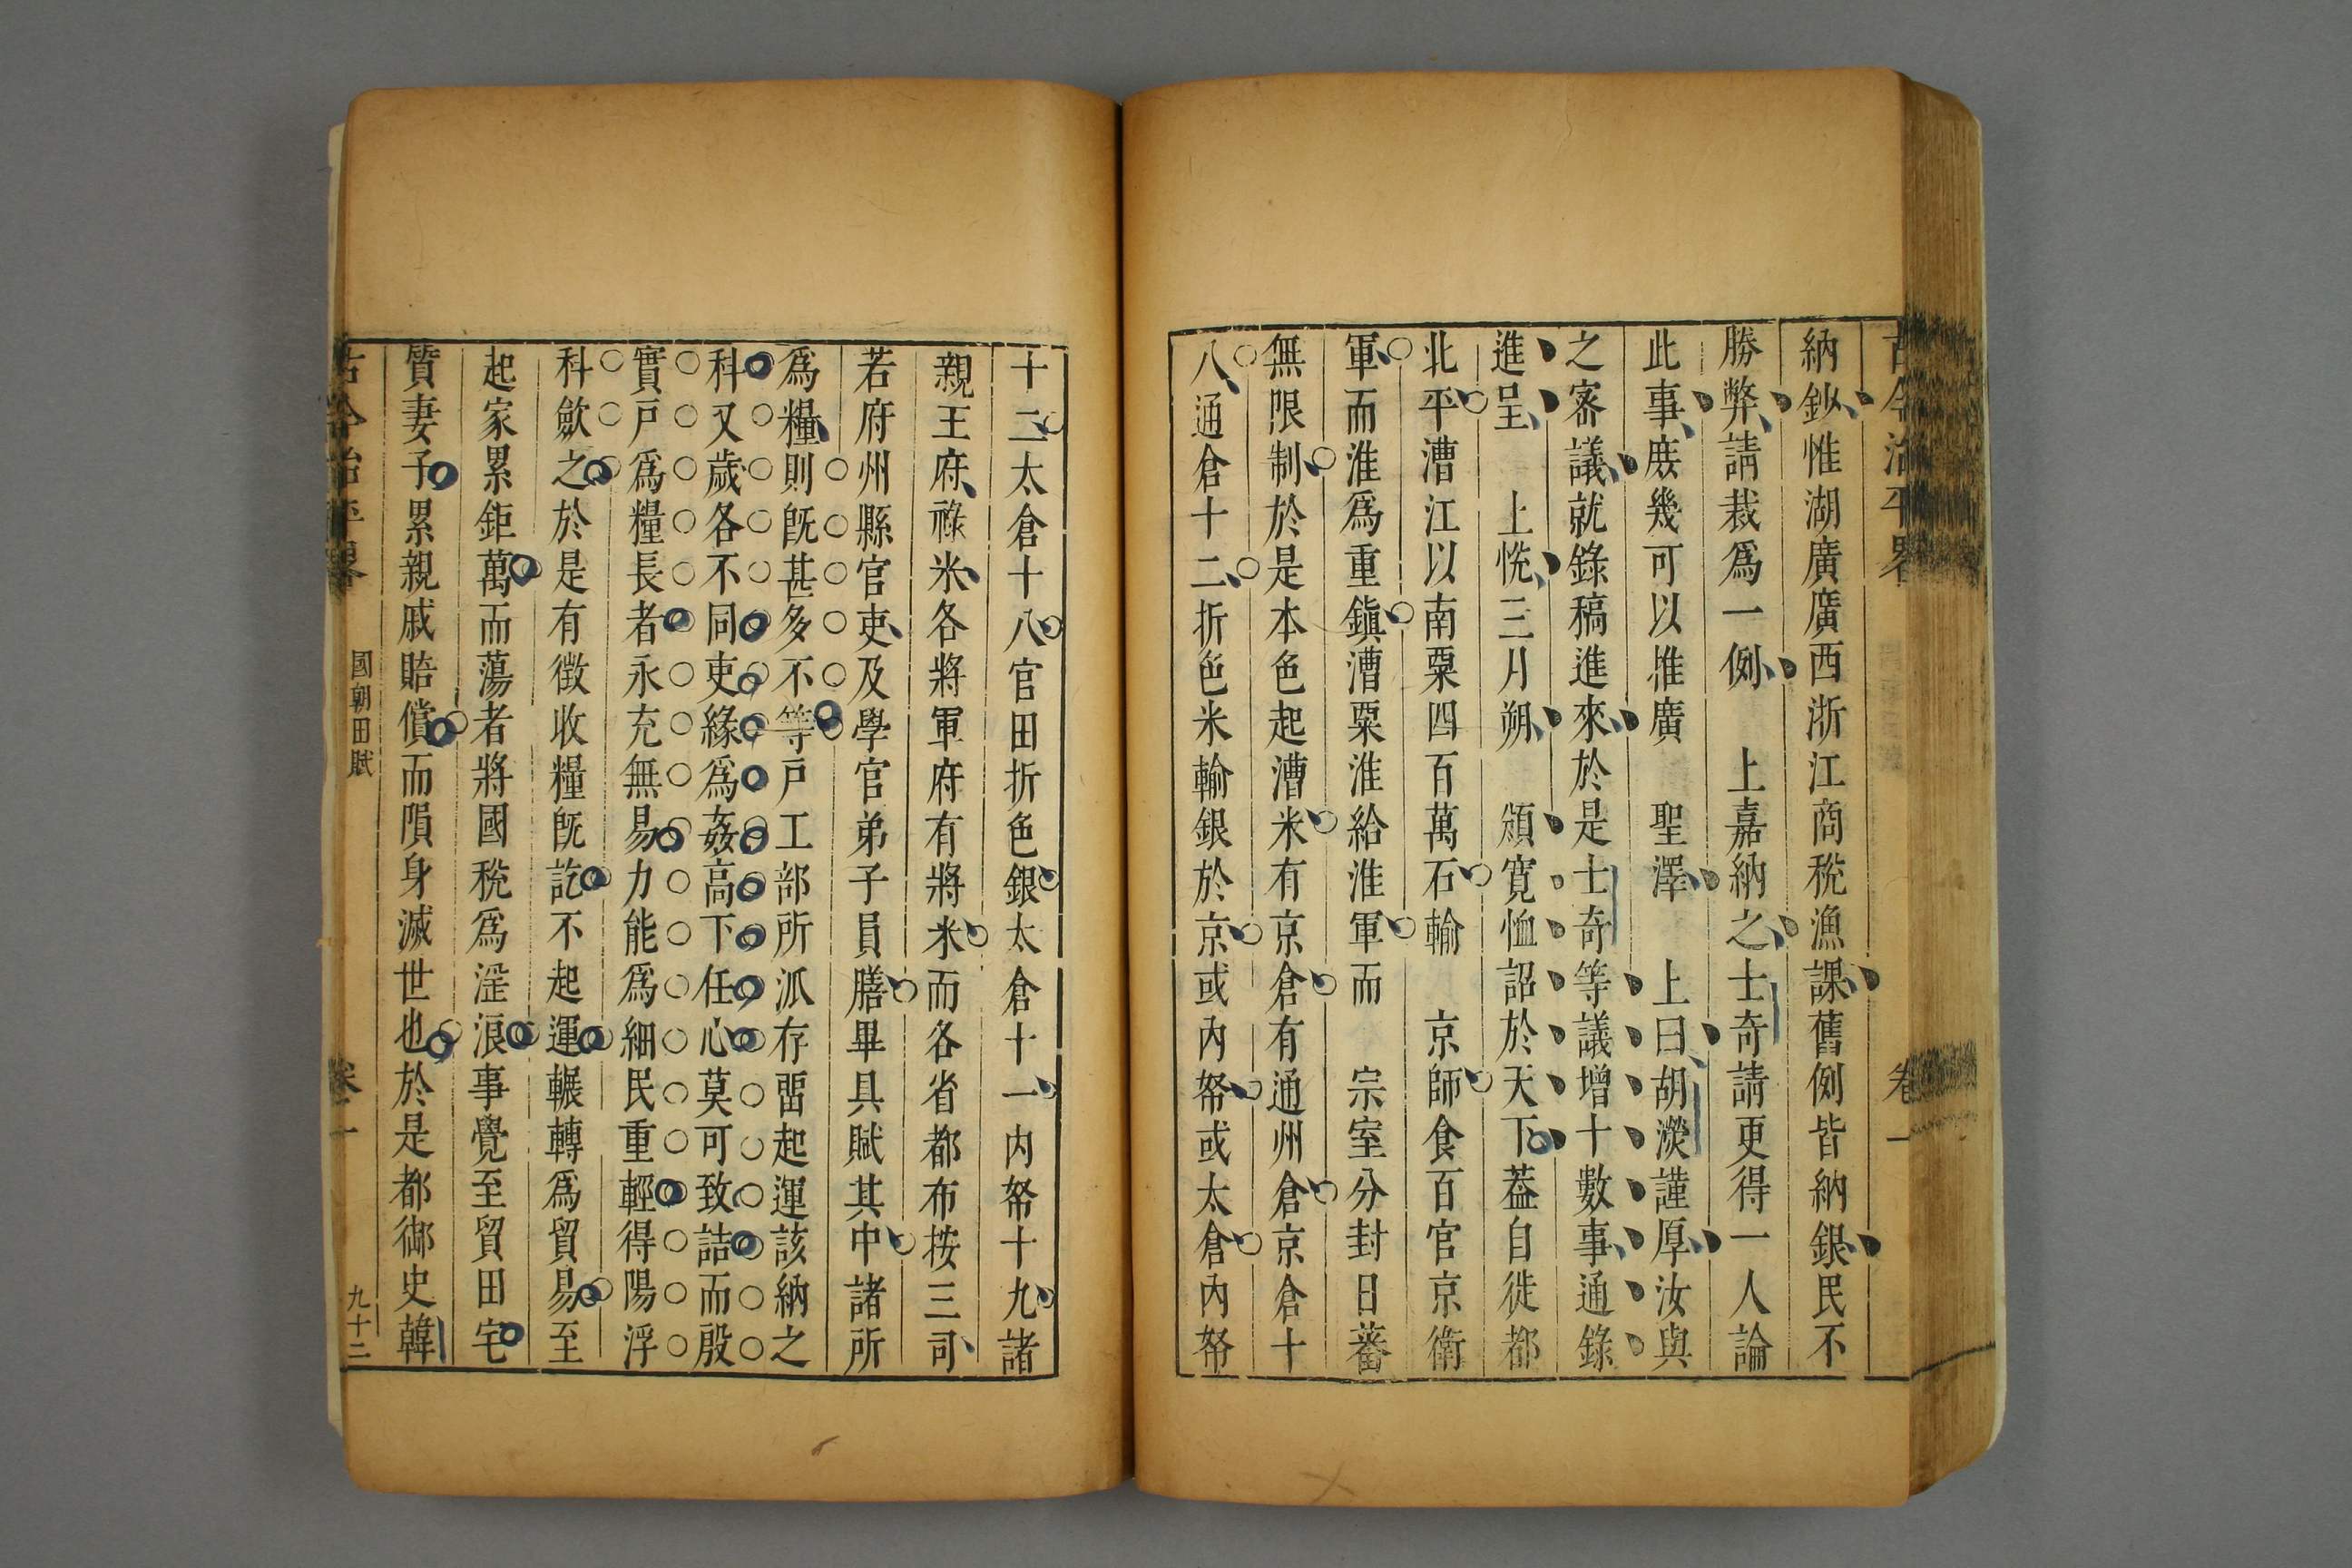 古今治平畧 卷一
納鈔惟湖廣廣西浙江商稅漁課舊例皆納銀民不
勝弊請裁爲一例 上嘉納之士奇請更得一人論
此事庻幾可以推廣 聖澤 上曰胡濙謹厚汝與
之宻議就錄稿進來於是士奇等議增十數事通錄
進呈 上恱三月朔 頒寬恤詔於天下葢自徙都
北平漕江以南粟四百萬石輸 京師食百官京衛
軍而淮爲重鎭漕粟淮給淮軍而 宗室分封日蕃
無限制於是本色起漕米有京倉有通州倉京倉十
八通倉十二折色米輸銀於京或內帑或太倉內帑
十二太倉十八官田折色銀太倉十一內帑十九諸
親王府祿米各將軍府有將米而各省都布按三司
若府州縣官吏及學官弟子員膳畢具賦其中諸所
爲糧則旣甚多不等戸工部所派存畱起運該納之
科又歲各不同吏緣爲姦高下任心莫可致詰而殷
實戸爲糧長者永充無易力能爲細民重輕得陽浮
科歛之於是有徵收糧旣訖不起運輾轉爲貿易至
起家累鉅萬而蕩者將國稅爲淫浪事覺至貿田宅
質妻子累親戚賠償而隕身滅世也於是都御史韓
古今治平畧 國朝田賦 卷一 九十二